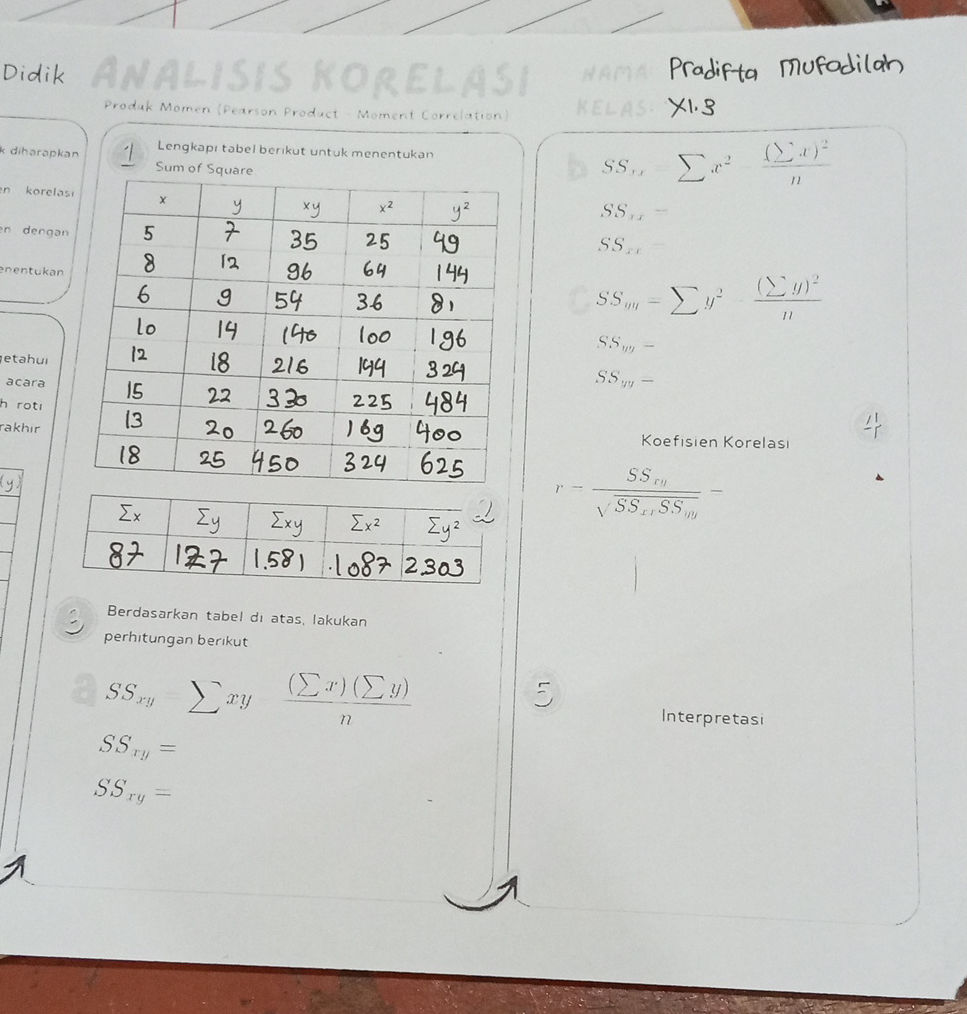 Didik
ANALISIS KORELASI
Produk Momen (Pearson Product - Moment Correlation)
NAMA: Pradifta Mufadilah
KELAS: XI.3
k diharapkan
n korelasi
en dengan
enentukan
getahui
acara
h roti
rakhir
(y)
1 Lengkapi tabel berikut untuk menentukan
Sum of Square
x y xy x² y²
5 7 35 25 49
8 12 96 64 144
6 9 54 36 81
10 14 140 100 196
12 18 216 144 324
15 22 330 225 484
13 20 260 169 400
18 25 450 324 625
2
Σx Σy Σxy Σx² Σy²
87 127 1.581 .1087 2303
3 Berdasarkan tabel di atas, lakukan
perhitungan berikut
a SS_xy = Σxy - (Σx)(Σy)/n
SS_xy =
SS_xy =
b SS_xx = Σx² - (Σx)²/n
SS_xx =
SS_xx =
C SS_yy = Σy² - (Σy)²/n
SS_yy =
SS_yy =
4
Koefisien Korelasi
r = SS_xy/√SS_xx SS_yy =
5
Interpretasi